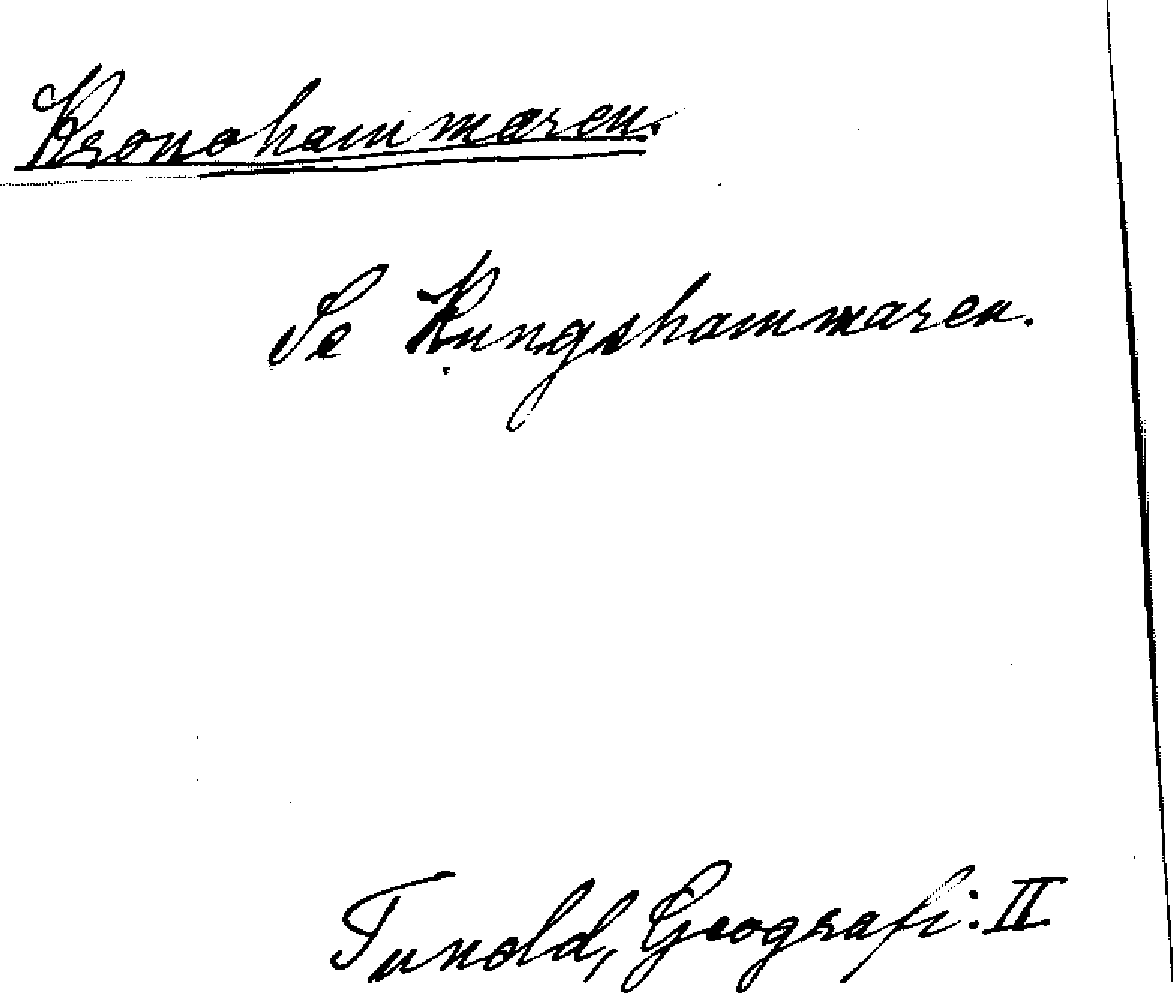 Kronohammaren.
Se Kungshammaren.
Tuneld, Geografi. II